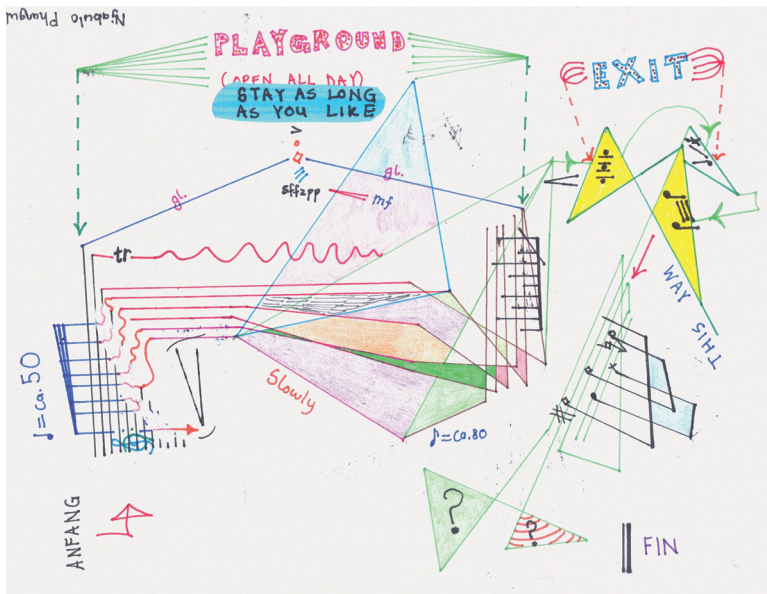 Njabulo Phungu
PLAYGROUND
(OPEN ALL DAY)
STAY AS LONG
AS YOU LIKE
EXIT
gl.
gl.
sffzpp
mf
tr
THIS
WAY
♩=ca.50
Slowly
♪=ca.80
ANFANG
?
?
FIN